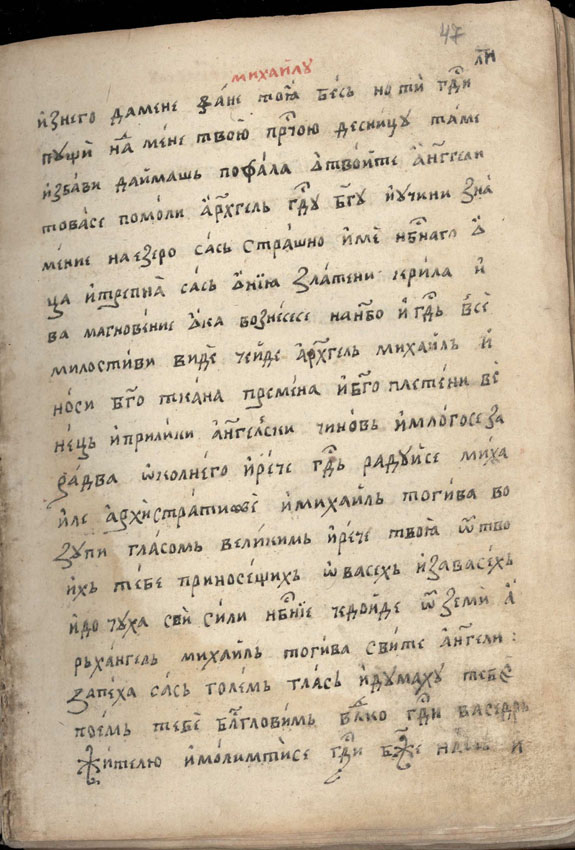 47
михайлу
ли
изнего дамене ѕане тоѧ бесь но ти гд҇и
пущи на мене твою пр҇чою десницу таме
избави даймашь пофала ѿтвойте а҆нг҇ели
товасе помоли а҆рх҇гель гд҇у б҇гу и҆учини зна
мение наезеро сась страшно име нб҇наго
ца и҆трепна сась златени керила и
ва магновение вознесесе нан҇бо и҆ гд҇ь всѐ
милостиви виде че иде а҆рх҇гель михаиль и
носи б҇го ткана премена и҆б҇го плетени вѐ
нець и҆прилики а҆нг҇елски чиновь и҆млогосе за
радва ѡколнего и҆рече гд҇ь радуйсе миха
иле архистратиѳе и҆михаиль тогива во
зупи гласомь великимь и҆рече твоѧ ѿ тво
ихь тебе приносещихь ѡ васехь и҆ завасехь
и҆дочуха сви сили нб҇ние чедойде ѿ земи а҆
рьхангель михаиль тогива свите а҆нг҇ели :
запеха сась големь глась и҆думаху тебе
поемь тебе б҇лгловимь в҇лко гд҇и васедрь
жителю и҆молимтисе гд҇и б҇же наш и